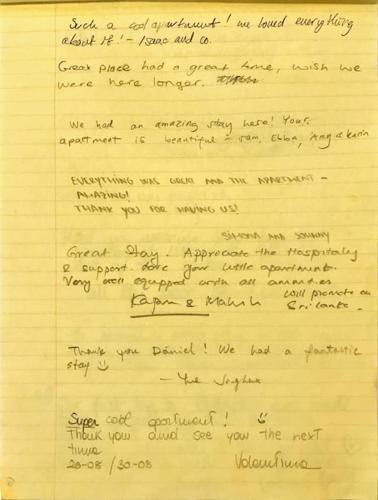 Such a cool apartment! we loved everything
about it! - Isaac and co.
Great place had a great time, wish we
were here longer.
We had an amazing stay here! Your
apartment is beautiful - Sam, Ebba, Ang & Karin
EVERYTHING WAS GREAT AND THE APARTMENT -
AMAZING!
THANK YOU FOR HAVING US!
SIMONA AND JOHNNY
Great Stay. Appreciate the Hospitality
& support. Love your little apartment.
Very well equipped with all amenities
Will promote in
Sri Lanka.
Thank you Daniel! We had a fantastic
stay
Super cool apartment!
Thank you and see you the next
time
28-08 / 30-08
Valentina